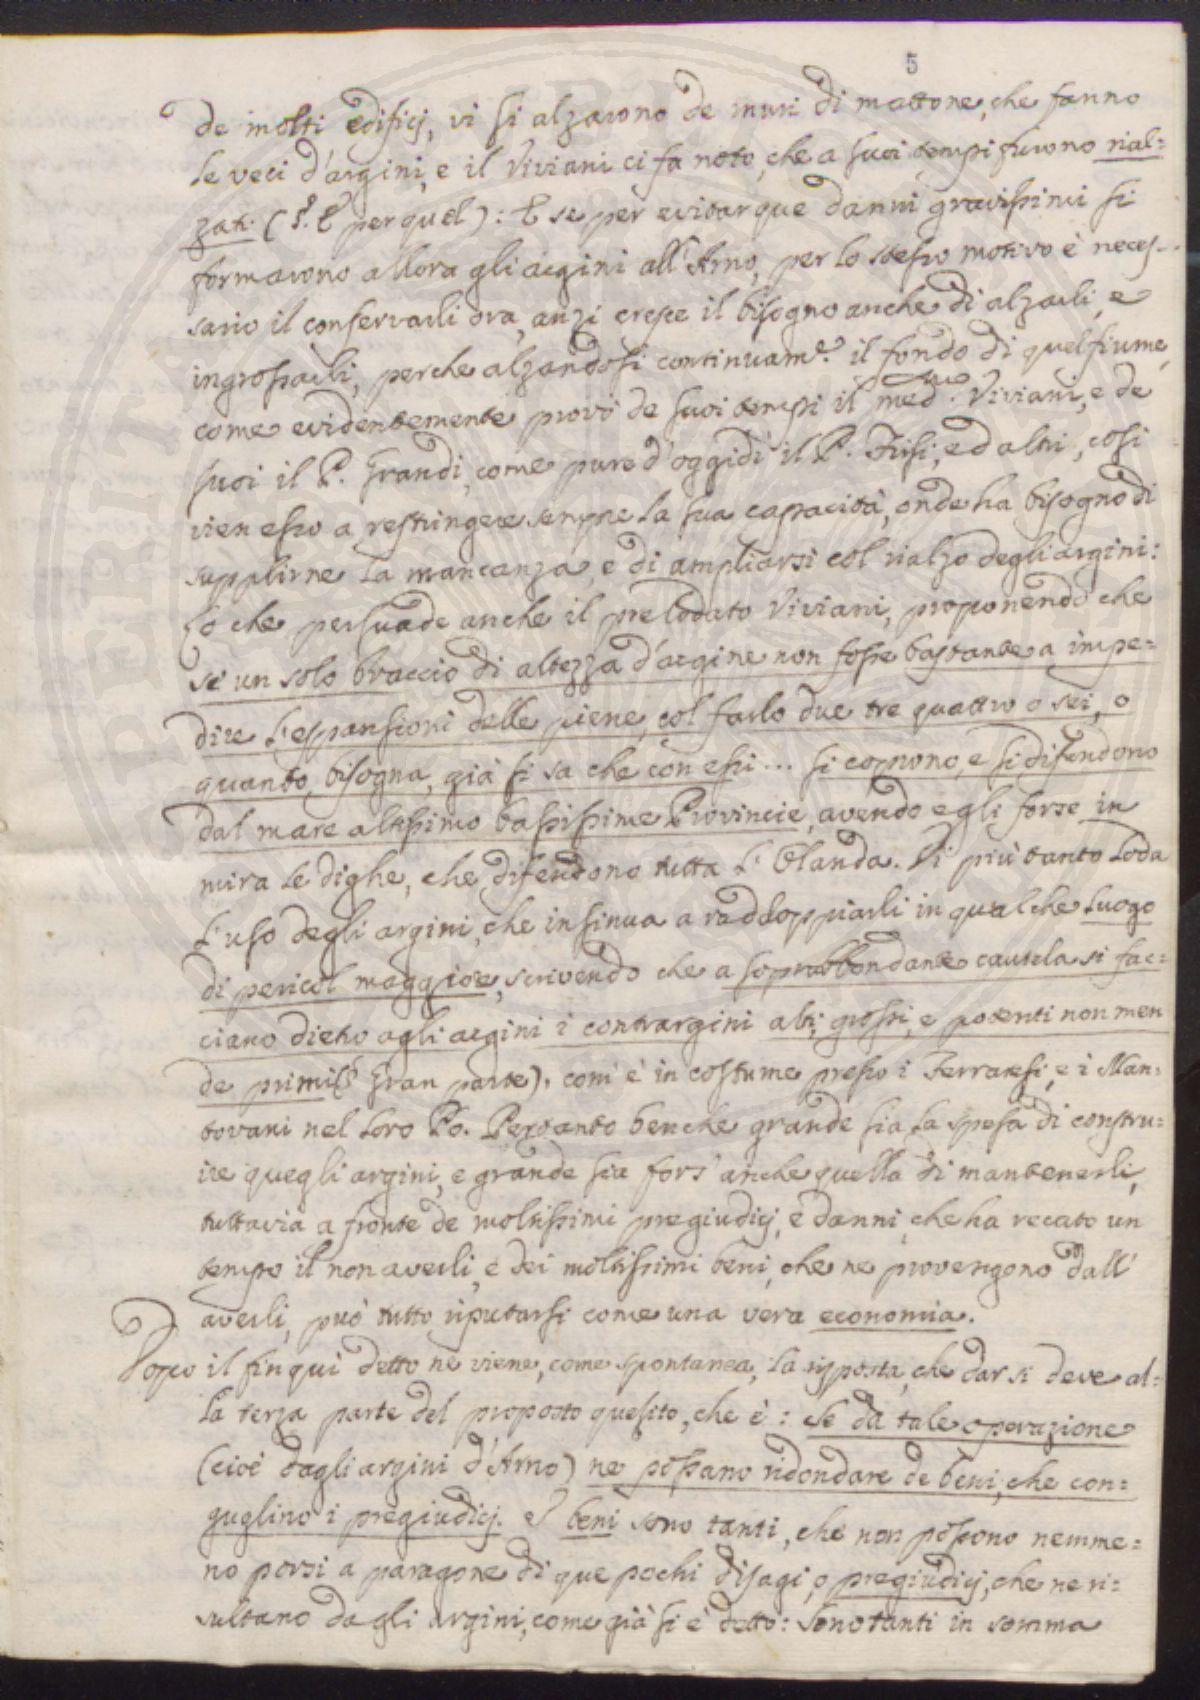 5
de molti edificj, vi si alzarono de muri di mattone, che fanno
le veci d'argini, e il Viviani ci fa noto, che a suoi tempi furono rial=
zati. (§. E per quel): E se per evitar que danni gravissimi si
formarono allora gli argini all'Arno, per lo stesso motivo è neces=
sario il conservarli ora, anzi cresce il bisogno anche di alzarli, e
ingrossarli, perche alzandosi continuam.e il fondo di quel fiume,
come evidentemente provò de suoi tempi il med.mo Viviani, e de
suoi il P. Grandi, come pure d'oggidì il P. Frisi, ed altri, così
vien esso a restringere sempre la sua capacità, onde ha bisogno di
supplirne la mancanza, e di ampliarsi col rialzo degli argini:
Lo che persuade anche il prelodato Viviani, proponendo che
se un solo braccio di altezza d'argine non fosse bastante a impe=
dire l'espansioni delle piene, col farlo due tre quattro o sei, o
quanto bisogna, già si sa che con essi ... si coprono, e si difendono
dal mare altissimo bassissime Provincie, avendo egli forse in
mira le dighe, che difendono tutta l'Olanda. Di più tanto loda
l'uso degli argini, che insinua a raddoppiarli in qualche luogo
di pericol maggiore, scrivendo che a soprabbondante cautela si fac=
ciano dietro agli argini i contrargini alti, grossi, e potenti non men
de primi (§. Gran parte), com'è in costume presso i Ferraresi, e i Man=
tovani nel loro Po. Pertanto benche grande sia la spesa di constru=
ire quegli argini, e grande sia fors'anche quella di mantenerli,
tuttavia a fronte de moltissimi pregiudicj, e danni, che ha recato un
tempo il non averli, e dei moltissimi beni, che ne provengono dall'
averli, può tutto riputarsi come una vera economia.
Dopo il fin qui detto ne viene, come spontanea, la risposta, che dar si deve al=
la terza parte del proposto quesito, che è: Se da tale operazione
(cioè dagli argini d'Arno) ne possano ridondare de beni, che con=
guglino i pregiudicj. I beni sono tanti, che non possono nemme=
no porsi a paragone di que pochi disagi, o pregiudicj, che ne ri=
sultano dagli argini, come già si è detto: Sono tanti in somma